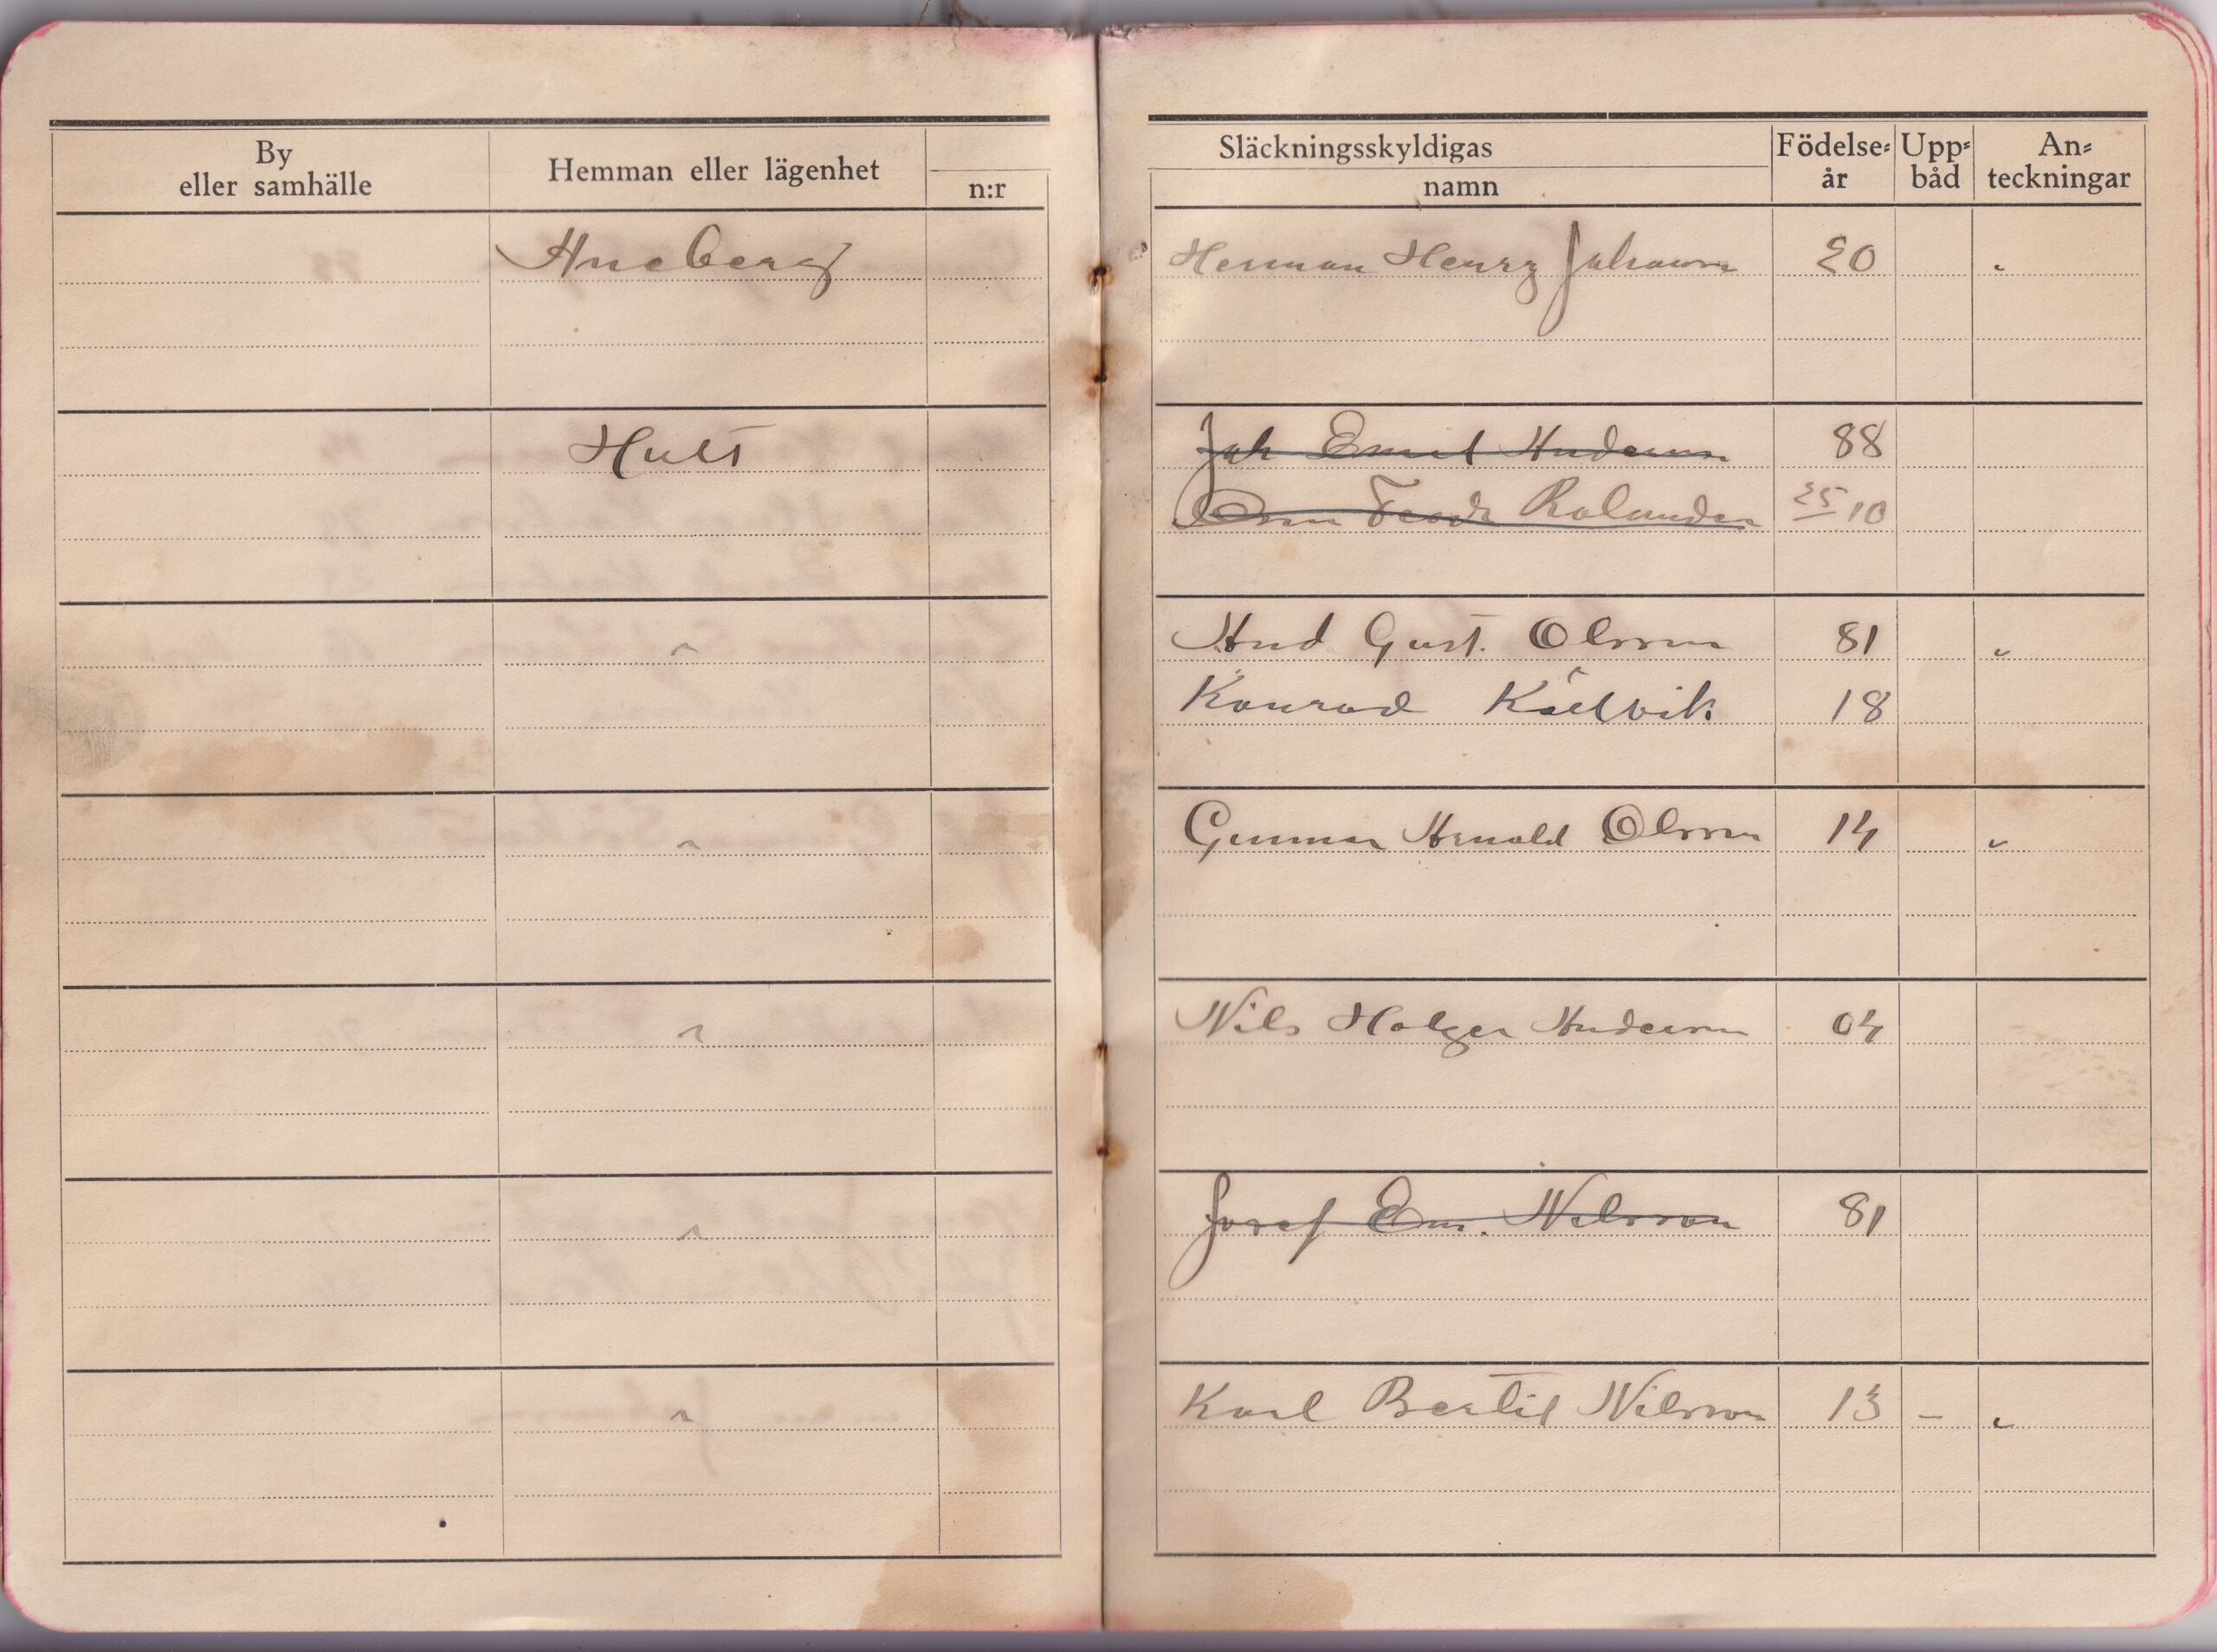 By
eller samhälle
Hemman eller lägenhet
n:r
Släckningsskyldigas
namn
Födelse-
år
Upp-
båd
An-
teckningar
Aneberg Herman Henry Johansson 20 "
Hult Joh Emil Anderson 88
Frode Rolander 25 10
" And Gust. Olsson 81 "
Konrad Källvik 18
" Gunnar Arnold Olsson 14 "
" Nils Holger Anderson 04
" Josef Em. Nilsson 81
" Karl Bertil Nilsson 13 – "